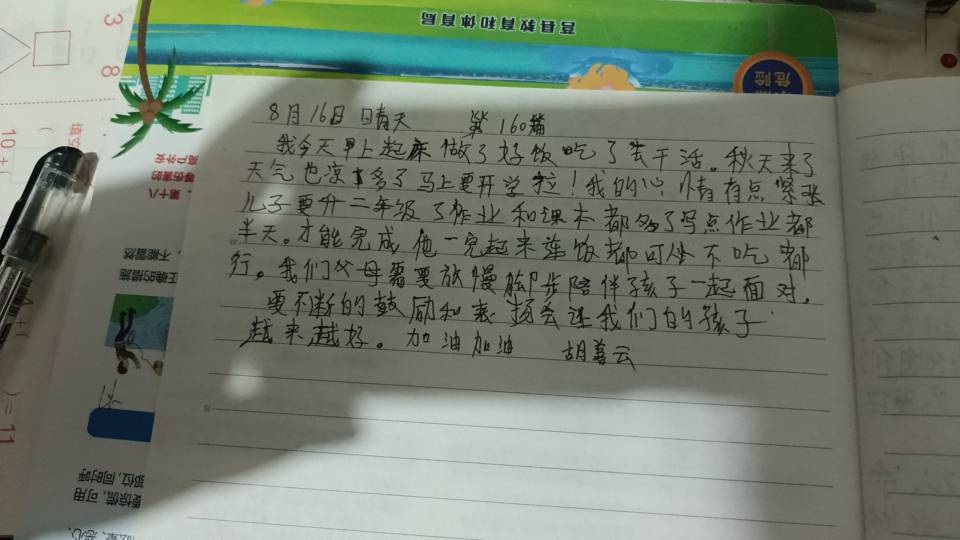 莒县教育和体育局
危险
8月16日 晴天 第160篇
我今天早上起床做了好饭吃了去干活。秋天来了
天气也凉多了马上要开学拉！我的心情有点紧张
儿子要升二年级了作业和课本都多了写点作业都
半天。才能完成他一完起来连饭都可坐不吃都
行。我们父母需要放慢脚步陪伴孩子一起面对，
要不断的鼓励和表扬会让我们的孩子
越来越好。加油加油 胡善云
3 8
10+(
)=11
第十八
不能冒然
正确的措施
部位，同时呼